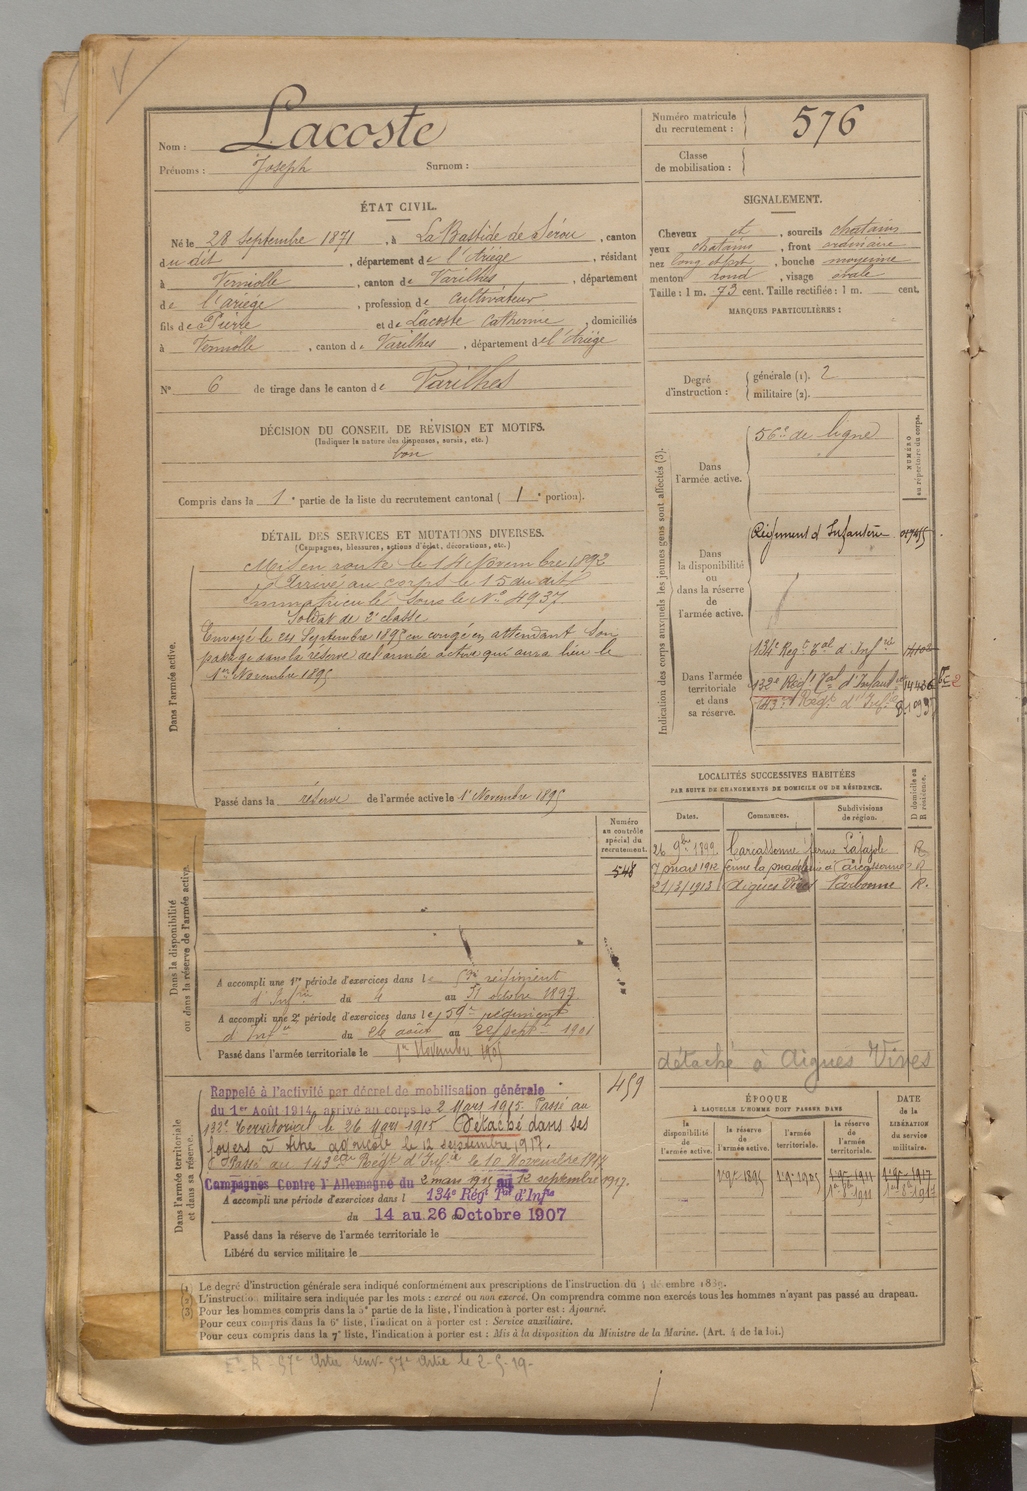 Nom : Lacoste
Prénoms : Joseph Surnom :
Numéro matricule
du recrutement : 576
Classe
de mobilisation :
ÉTAT CIVIL.
Né le 28 Septembre 1871, à La Bastide de Sérou, canton
du dit, département de l'Ariège, résidant
à Verniolle, canton de Varilhes, département
de l'Ariège, profession de Cultivateur
fils de Pierre et de Lacoste Catherine, domiciliés
à Verniolle, canton de Varilhes, département de l'Ariège
N° 6 de tirage dans le canton de Varilhes
SIGNALEMENT.
Cheveux et, sourcils chatains
yeux chatains, front ordinaire
nez long, bouche moyenne
menton rond, visage ovale
Taille : 1 m. 73 cent. Taille rectifiée : 1 m. cent.
MARQUES PARTICULIÈRES :
Degré
d'instruction :
générale (1). 2
militaire (2).
DÉCISION DU CONSEIL DE RÉVISION ET MOTIFS.
(Indiquer la nature des dispenses, sursis, etc.)
bon
Compris dans la 1e partie de la liste du recrutement cantonal ( 1e portion).
DÉTAIL DES SERVICES ET MUTATIONS DIVERSES.
(Campagnes, blessures, actions d'éclat, décorations, etc.)
Dans l'armée active.
Mis en route le 14 Novembre 1892
Arrivé au corps le 15 du dit
immatriculé sous le N° 4937
Soldat de 2e classe
Envoyé le 24 Septembre 1895 en congé en attendant son
passage dans la réserve de l'armée active qui aura lieu le
1er Novembre 1895
Passé dans la réserve de l'armée active le 1er Novembre 1895
Indication des corps auxquels les jeunes gens sont affectés (3).
NUMÉRO
au répertoire du corps.
Dans
l'armée active.
56e de ligne
Dans
la disponibilité
ou
dans la réserve
de
l'armée active.
Régiment d'Infanterie
Dans l'armée
territoriale
et dans
sa réserve.
134e Régt Tal d'Infrie
132e Régt Tal d'Infanterie 14436
143e Régt d'Infie
LOCALITÉS SUCCESSIVES HABITÉES
PAR SUITE DE CHANGEMENTS DE DOMICILE OU DE RÉSIDENCE.
Dates. Communes. Subdivisions
de région.
D domicile ou
R résidence.
26 9bre 1899 Carcassonne ferme Lafajole R
7 mars 1912 ferme la madeleine à Carcassonne R
21/3/1913 Aigues Vives Narbonne R.
détaché à Aigues Vives
Dans la disponibilité
ou dans la réserve de l'armée active.
Numéro
au contrôle
spécial du
recrutement.
548
A accompli une 1re période d'exercices dans le régiment
d'Infrie du 4 au 31 octobre 1897
A accompli une 2e période d'exercices dans le 59e régiment
d'Infie du 26 août au 22 sept. 1901
Passé dans l'armée territoriale le 1er Novembre 1905
Dans l'armée territoriale
et dans sa réserve.
459
Rappelé à l'activité par décret de mobilisation générale
du 1er Août 1914, arrivé au corps le 2 Mars 1915. Passé au
132e Territorial le 26 Mars 1915. Détaché dans ses
foyers à titre agricole le 12 septembre 1917.
Passé au 143ème Régt d'Infie le 10 Novembre 1917
Campagnes Contre l'Allemagne du 2 mars 1915 au 12 septembre 1917.
A accompli une période d'exercices dans l 134e Régt Tal d'Infie
du 14 au 26 Octobre 1907
Passé dans la réserve de l'armée territoriale le
Libéré du service militaire le
ÉPOQUE
À LAQUELLE L'HOMME DOIT PASSER DANS
la
disponibilité
de
l'armée active.
la
réserve
de
l'armée active.
l'armée
territoriale.
la
réserve
de
l'armée
territoriale.
DATE
de la
LIBÉRATION
du service
militaire.
1er 9bre 1895
1er 9bre 1905
1er 9bre 1911
1er 8bre 1911
1er 9bre 1917
1er 8bre 1917
(1) Le degré d'instruction générale sera indiqué conformément aux prescriptions de l'instruction du 4 décembre 1889.
(2) L'instruction militaire sera indiquée par les mots : exercé ou non exercé. On comprendra comme non exercés tous les hommes n'ayant pas passé au drapeau.
(3) Pour les hommes compris dans la 5e partie de la liste, l'indication à porter est : Ajourné.
Pour ceux compris dans la 6e liste, l'indication à porter est : Service auxiliaire.
Pour ceux compris dans la 7e liste, l'indication à porter est : Mis à la disposition du Ministre de la Marine. (Art. 4 de la loi.)